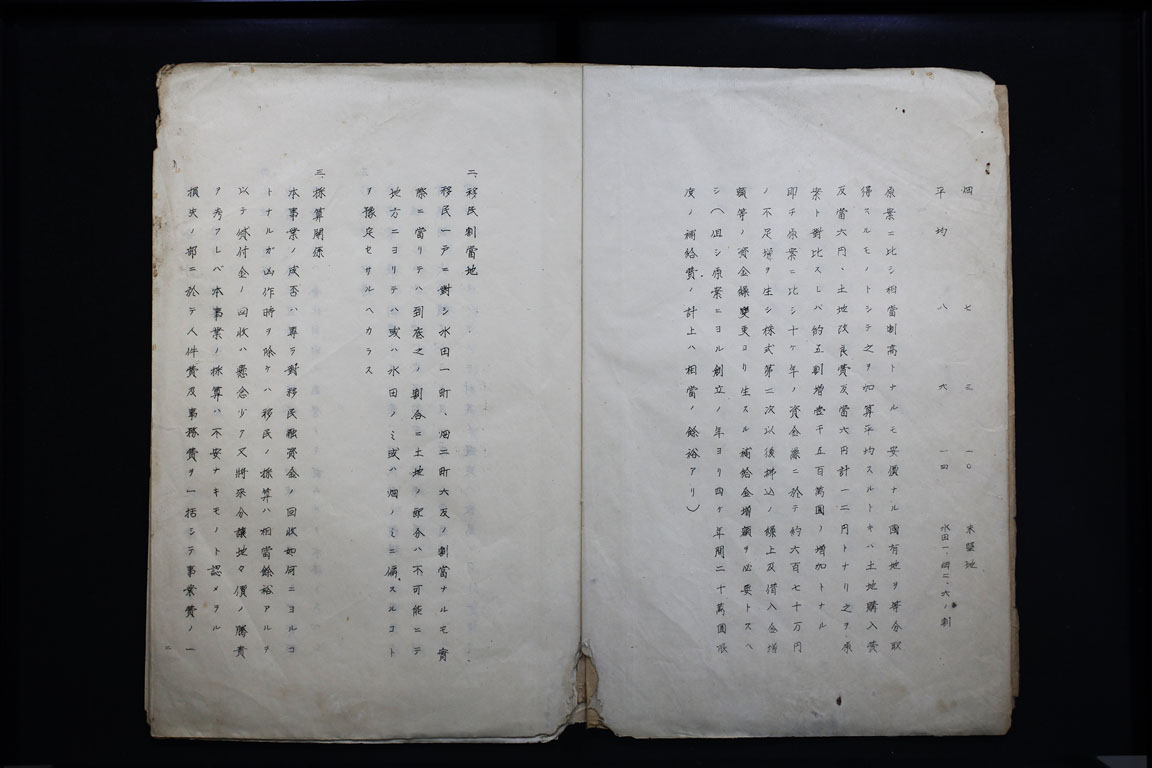 畑 七 三 一〇 未墾地
平均 八 六 一四 水田一、畑二、六ノ割
原案ニ比シ相當割高トナルモ安價ナル國有地ヲ等分取
得スルモノトシテ之ヲ加算平均スルトキハ土地購入費
反當六円、土地改良費反當六円計一二円トナリ之ヲ原
案ト對比スレバ約五割増壹千五百萬圓ノ増加トナル
即チ原案ニ比シ十ケ年ノ資金繰ニ於テ約六百七十万円
ノ不足増ヲ生シ株式第二次以後拂込ノ繰上及借入金増
額等ノ資金繰變更ヨリ生スル補給金増額ヲ必要トスヘ
シ(但シ原案ニヨル創立ノ年ヨリ四ケ年間二十萬圓限
度ノ補給費ノ計上ハ相當ノ餘裕アリ)
二、移民割當地
移民一戸ニ對シ水田一町、畑二町六反ノ割當ナルモ實
際ニ當リテハ到底之ノ割合ニ土地ノ配分ハ不可能ニテ
地方ニヨリテハ或ハ水田ノミ或ハ畑ノミニ偏スルコト
ヲ豫定セサルヘカラス
三、採算関係
本事業ノ成否ハ專ラ對移民融資金ノ回收如何ニヨルコ
トナルガ凶作時ヲ除ケハ移民ノ採算ハ相當餘裕アルヲ
以テ貸付金ノ回收ハ懸念少ク又將來分譲地ノ價ノ騰貴
ヲ考フレバ本事業ノ採算ハ不安ナキモノト認メラル
損失ノ部ニ於テ人件費及事務費ヲ一括シテ事業費ノ一
二